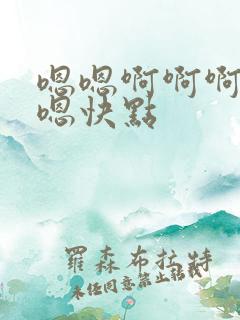 嗯嗯啊啊啊
嗯快點
羅森布拉特
未經同意禁止轉載